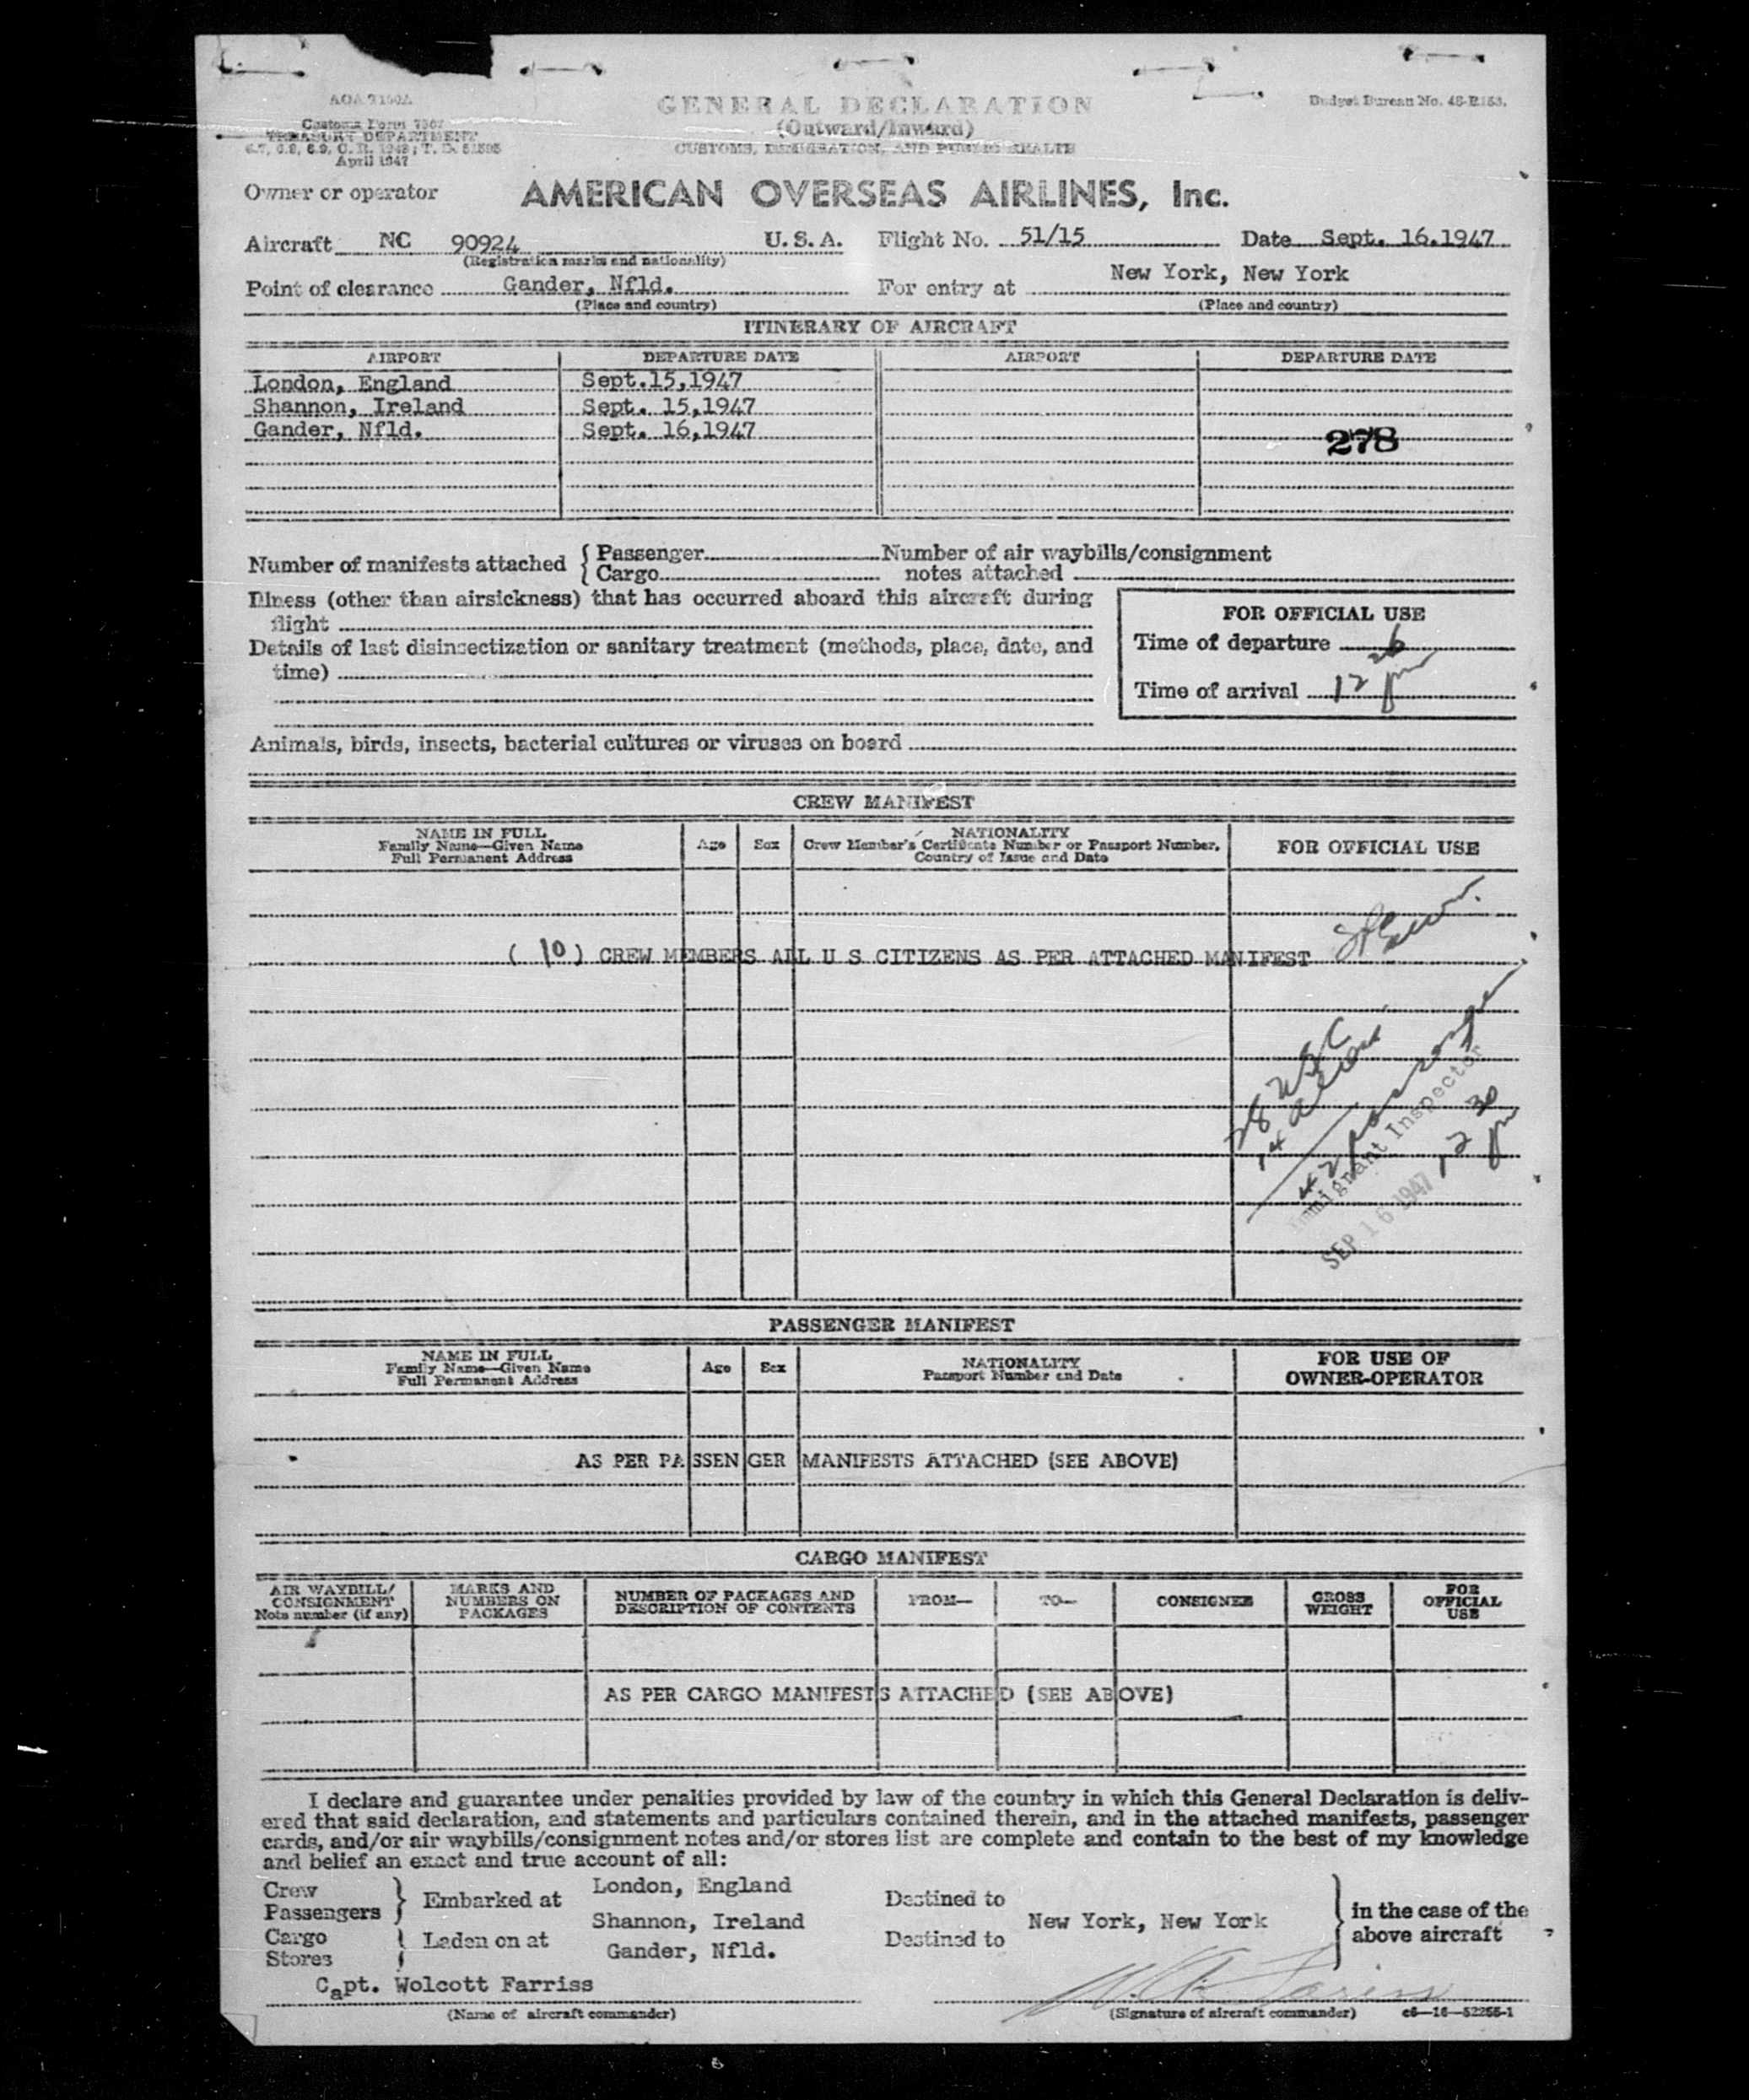 AOA 7150A
GENERAL DECLARATION
Budget Bureau No. 48-R153.
Customs Form 7507
(Outward/Inward)
TREASURY DEPARTMENT
CUSTOMS, IMMIGRATION, AND PUBLIC HEALTH
April 1947
Owner or operator AMERICAN OVERSEAS AIRLINES, Inc.
Aircraft NC 90924 U. S. A. Flight No. 51/15 Date Sept. 16.1947
(Registration marks and nationality)
Point of clearance Gander, Nfld. For entry at New York, New York
(Place and country) (Place and country)
ITINERARY OF AIRCRAFT
AIRPORT DEPARTURE DATE AIRPORT DEPARTURE DATE
London, England Sept.15,1947
Shannon, Ireland Sept. 15,1947
Gander, Nfld. Sept. 16,1947
278
Number of manifests attached { Passenger Number of air waybills/consignment
Cargo notes attached
Illness (other than airsickness) that has occurred aboard this aircraft during
flight
FOR OFFICIAL USE
Details of last disinsectization or sanitary treatment (methods, place, date, and
time)
Time of departure
Time of arrival 12 26 pm
Animals, birds, insects, bacterial cultures or viruses on board
CREW MANIFEST
NAME IN FULL
Family Name—Given Name
Full Permanent Address
Age Sex
NATIONALITY
Crew Member's Certificate Number or Passport Number,
Country of Issue and Date
FOR OFFICIAL USE
( 10 ) CREW MEMBERS ALL U S CITIZENS AS PER ATTACHED MANIFEST
28 USC
14 aliens
42 passengers
Immigrant Inspector
SEP 16 1947
12 30 pm
PASSENGER MANIFEST
NAME IN FULL
Family Name—Given Name
Full Permanent Address
Age Sex
NATIONALITY
Passport Number and Date
FOR USE OF
OWNER-OPERATOR
AS PER PASSENGER MANIFESTS ATTACHED (SEE ABOVE)
CARGO MANIFEST
AIR WAYBILL/
CONSIGNMENT
Note number (if any)
MARKS AND
NUMBERS ON
PACKAGES
NUMBER OF PACKAGES AND
DESCRIPTION OF CONTENTS
FROM— TO— CONSIGNEE
GROSS
WEIGHT
FOR
OFFICIAL
USE
AS PER CARGO MANIFESTS ATTACHED (SEE ABOVE)
I declare and guarantee under penalties provided by law of the country in which this General Declaration is deliv-
ered that said declaration, and statements and particulars contained therein, and in the attached manifests, passenger
cards, and/or air waybills/consignment notes and/or stores list are complete and contain to the best of my knowledge
and belief an exact and true account of all:
Crew
Passengers } Embarked at London, England Destined to
Shannon, Ireland New York, New York
Cargo
Stores } Laden on at Gander, Nfld. Destined to
in the case of the
above aircraft
Capt. Wolcott Farriss
(Name of aircraft commander) (Signature of aircraft commander) c6—16—52255-1